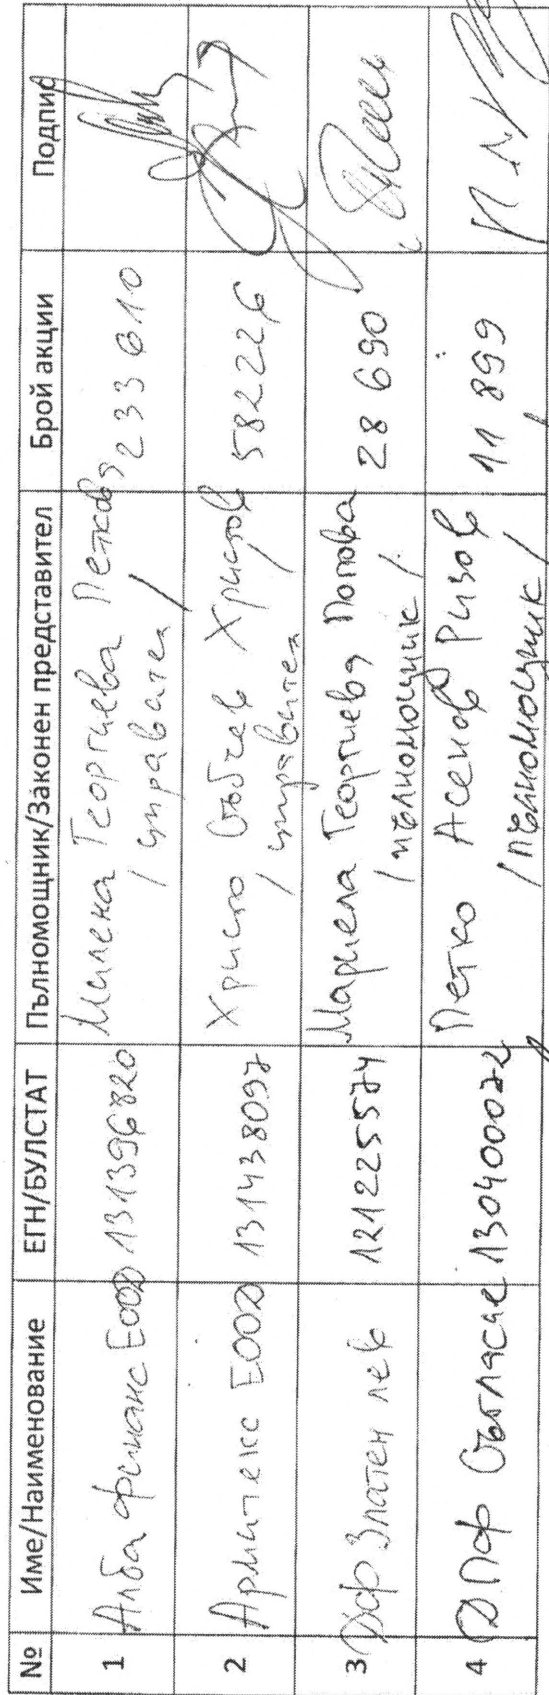 № Име/Наименование ЕГН/БУЛСТАТ Пълномощник/Законен представител Брой акции Подпис
1 Алба финанс ЕООД 131396820 Милена Георгиева Петкова 233 610
/ управител /
2 Армитекс ЕООД 131438097 Христо Събчев Христов 582226
/ управител
3 ДФ Златен лев 121225574 Мариела Георгиева Попова 28 690
/ пълномощник /
4 ДПФ Съгласие 130400072 Петко Асенов Ризов 11 899
/ пълномощник /